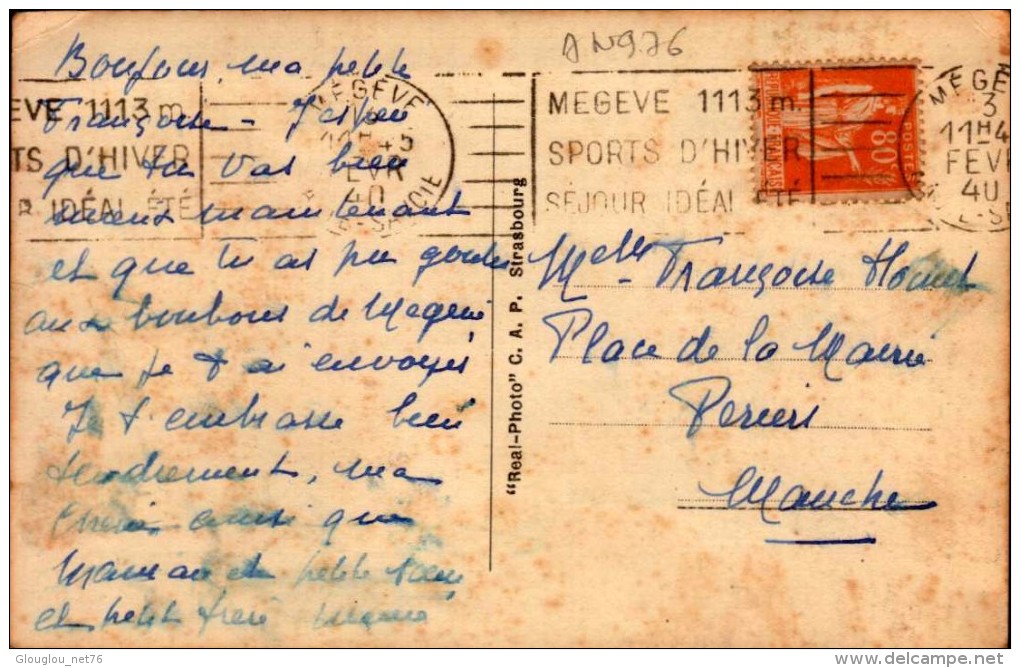 Bonjour, ma petite
Françoise - J'espère
que tu vas bien
maintenant
et que tu as pu goûter
aux bonbons de Megève
que je t'ai envoyés
Je t'embrasse bien
tendrement, ma
chérie, ainsi que
maman et petite sœur
et petit frère
A N976
EVE 1113 m.
TS D'HIVER
R IDÉAL ÉTÉ
MEGEVE
FEVR
40
MEGEVE 1113 m.
SPORTS D'HIVER
SÉJOUR IDÉAL ÉTÉ
POSTES
80c
MEGE
3
11H4
FEVR
40
Melle Françoise
Place de la Mairie
Periers
Manche
"Real-Photo" C. A. P. Strasbourg
Glouglou_net76
DELCAMPE.NET